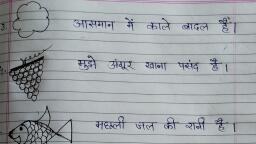 3. आसमान में काले बादल हैं।
मुझे अंगूर खाना पसंद है।
मछली जल की रानी है।